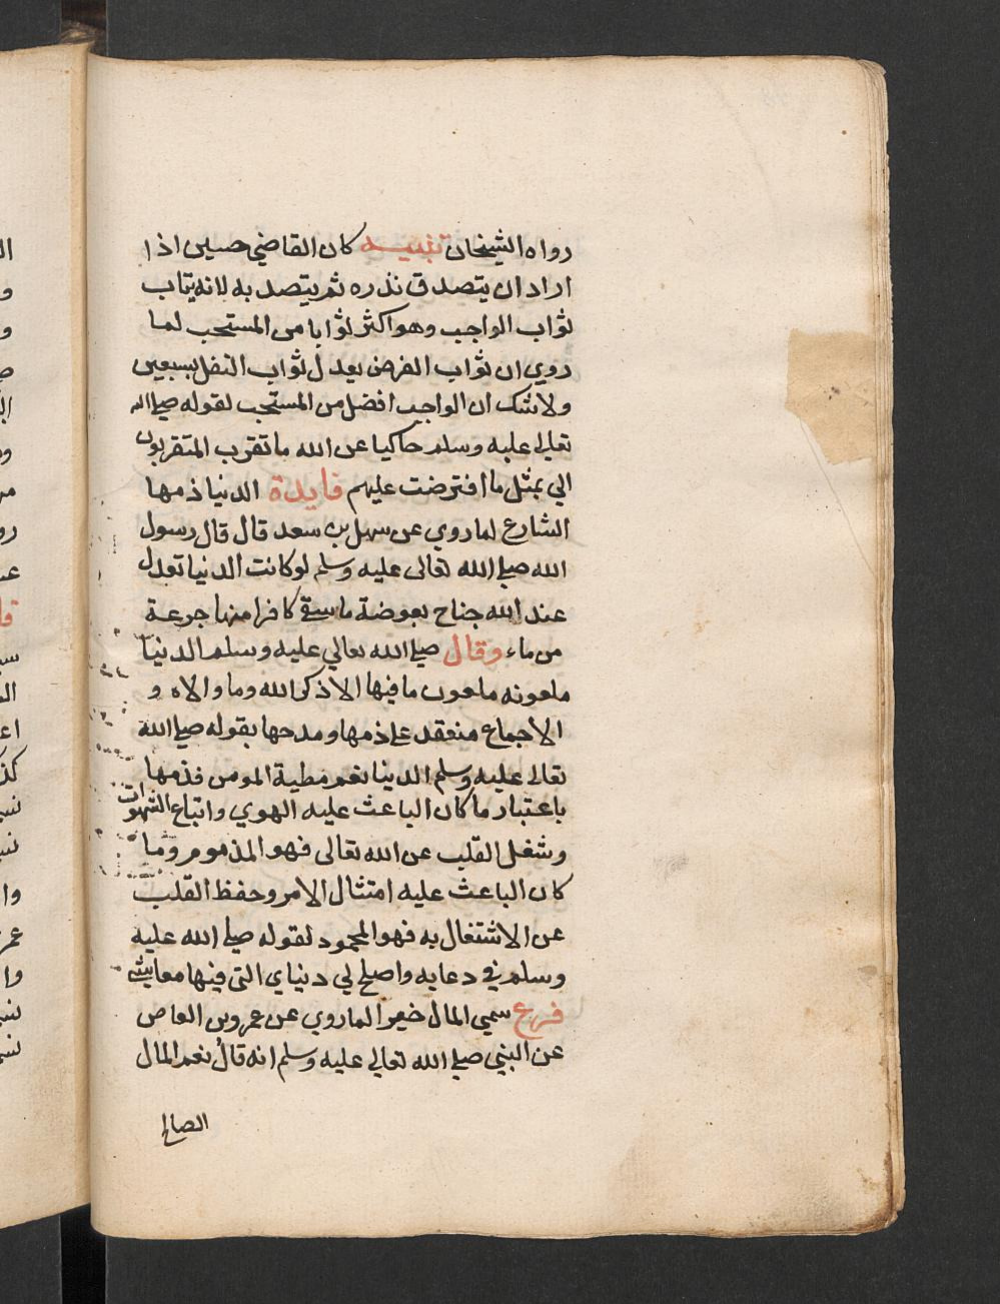 رواه الشيخان تنبيه كان القاضي حسين اذا
اراد ان يتصدق نذره ثم يتصد به لانه يثاب
ثواب الواجب وهو اكثر ثوابا من المستحب لما
روي ان ثواب الفرض يعدل ثواب النفل بسبعين
ولا شك ان الواجب افضل من المستحب لقوله صلي الله
تعالي عليه وسلم حاكيا عن الله ما تقرب المتقربون
الي بمثل ما افترضت عليهم فايدة الدنيا ذمها
الشارع لما روي عن سهل بن سعد قال قال رسول
الله صلي الله تعالى عليه وسلم لو كانت الدنيا تعدل
عند الله جناح بعوضة ما سقي كافرا منها جرعة
من ماء وقال صلي الله تعالي عليه وسلم الدنيا
ملعونه ملعون ما فيها الا ذكر الله وما والاه و
الاجماع منعقد علي ذمها ومدحها بقوله صلي الله
تعالى عليه وسلم الدينا نعم مطية المومن فذمها
باعتبار ما كان الباعث عليه الهوي واتباع الشهوات
وشغل القلب عن الله تعالى فهو المذموم وما
كان الباعث عليه امتثال الامر وحفظ القلب
عن الاشتغال به فهو المحمود لقوله صلي الله عليه
وسلم في دعايه واصلح لي دنياي التي فيها معايشي
فرع سمي المال خيرا لما روي عن عمرو بن العاص
عن النبي صلي الله تعالي عليه وسلم انه قال نعم المال
الصالح